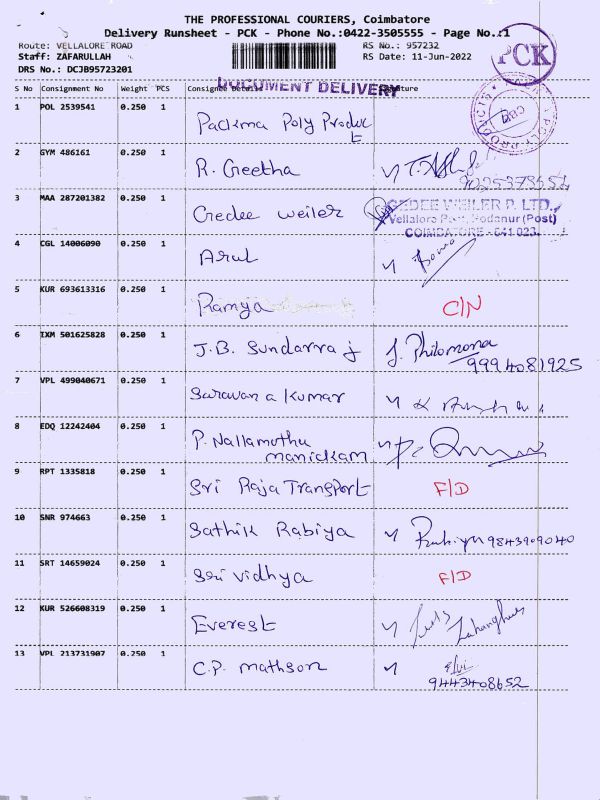 THE PROFESSIONAL COURIERS, Coimbatore
Delivery Runsheet - PCK - Phone No.:0422-3505555 - Page No.:1
Route: VELLALORE ROAD RS No.: 957232
Staff: ZAFARULLAH RS Date: 11-Jun-2022
DRS No.: DCJB95723201
PCK
DOCUMENT DELIVERY
S No Consignment No Weight PCS Consignee Details Signature
1 POL 2539541 0.250 1 Padma Poly Product
2 GYM 486161 0.250 1 R. Geetha
3 MAA 287201382 0.250 1 Gedee weiler GEDEE WEILER P. LTD.,
Vellalore Post, Podanur (Post)
COIMBATORE - 641 023.
4 CGL 14006090 0.250 1 Arul
5 KUR 693613316 0.250 1 Ramya C/N
6 IXM 501625828 0.250 1 J.B. Sundarraj J. Philomona
9994081925
7 VPL 499040671 0.250 1 Saravana Kumar
8 EDQ 12242404 0.250 1 P. Nallamuthu
manickam
9 RPT 1335818 0.250 1 Sri Raja Transport F/D
10 SNR 974663 0.250 1 Sathik Rabiya 9843909040
11 SRT 14659024 0.250 1 Sri vidhya F/D
12 KUR 526608319 0.250 1 Everest
13 VPL 213731907 0.250 1 C.P. mathson
9443408652